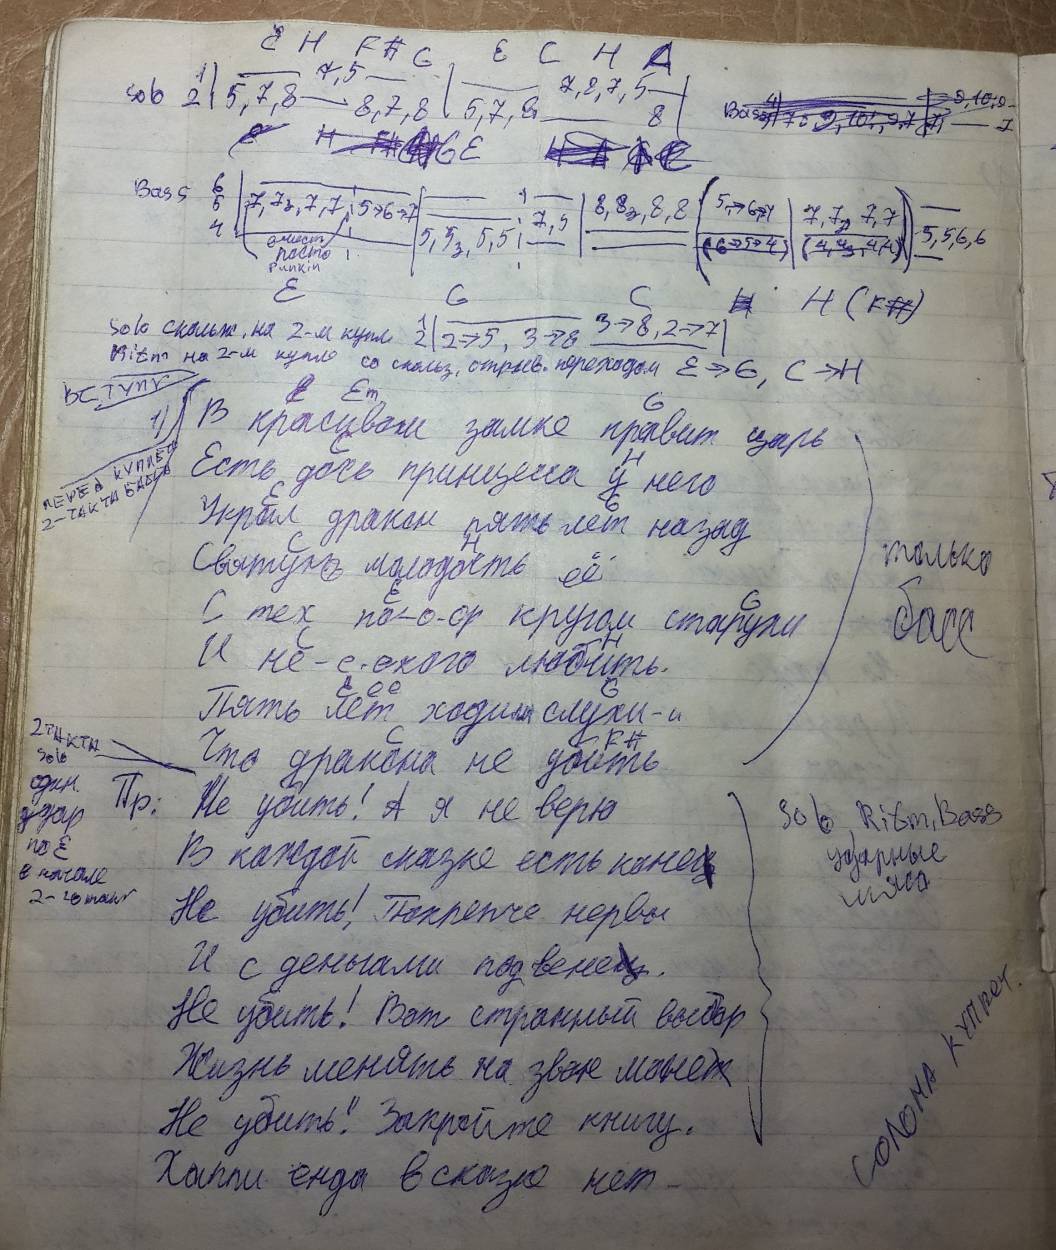 E H F# G E C H A
Solo 1 7,5 7,8,7,5
2 5,7,8 8,7,8 5,7,8 8
Bass
Bass 6
5 7,7,7,7 5→6→7 7,5 8,8,8,8 5→6→7 7,7,7,7 5,5,6,6
4 5,5,5,5 (6→5→4) (4,4,4,4)
E G C H (F#)
Solo скольж. на 2-м купл 1 3→8, 2→7
2 2→5, 3→8
Ritm на 2-м купле со скольз. отрыв. переходом E→G, C→H
ВСТУПЛ
E Em G
1) В красивом замке правит царь
C H
Есть дочь принцесса у него
ПЕРЕД КУПЛЕТ
2-ТАКТА БАСЫ
E G
Украл дракон пять лет назад
C H
Святую молодость её
только
басс
E G
С тех по-о-ор кругом старухи
C H
И не-с-окого любить.
E G
Пять лет ходили слухи-и
C F#
Что дракона не убить
2 ТАКТА
Solo
один
удар
по E
в начале
2-го такт
Пр: Не убить! А я не верю
Solo, Ritm, Bass
ударные
В каждой сказке есть конец
Не убить! Покрепче нервы
И с деньгами под венец.
Не убить! Вот странный выбор
Жизнь менять на звон монет
Не убить! Закройте книгу.
Хаппи енда в сказке нет
СОЛО НА КУПЛЕТ.